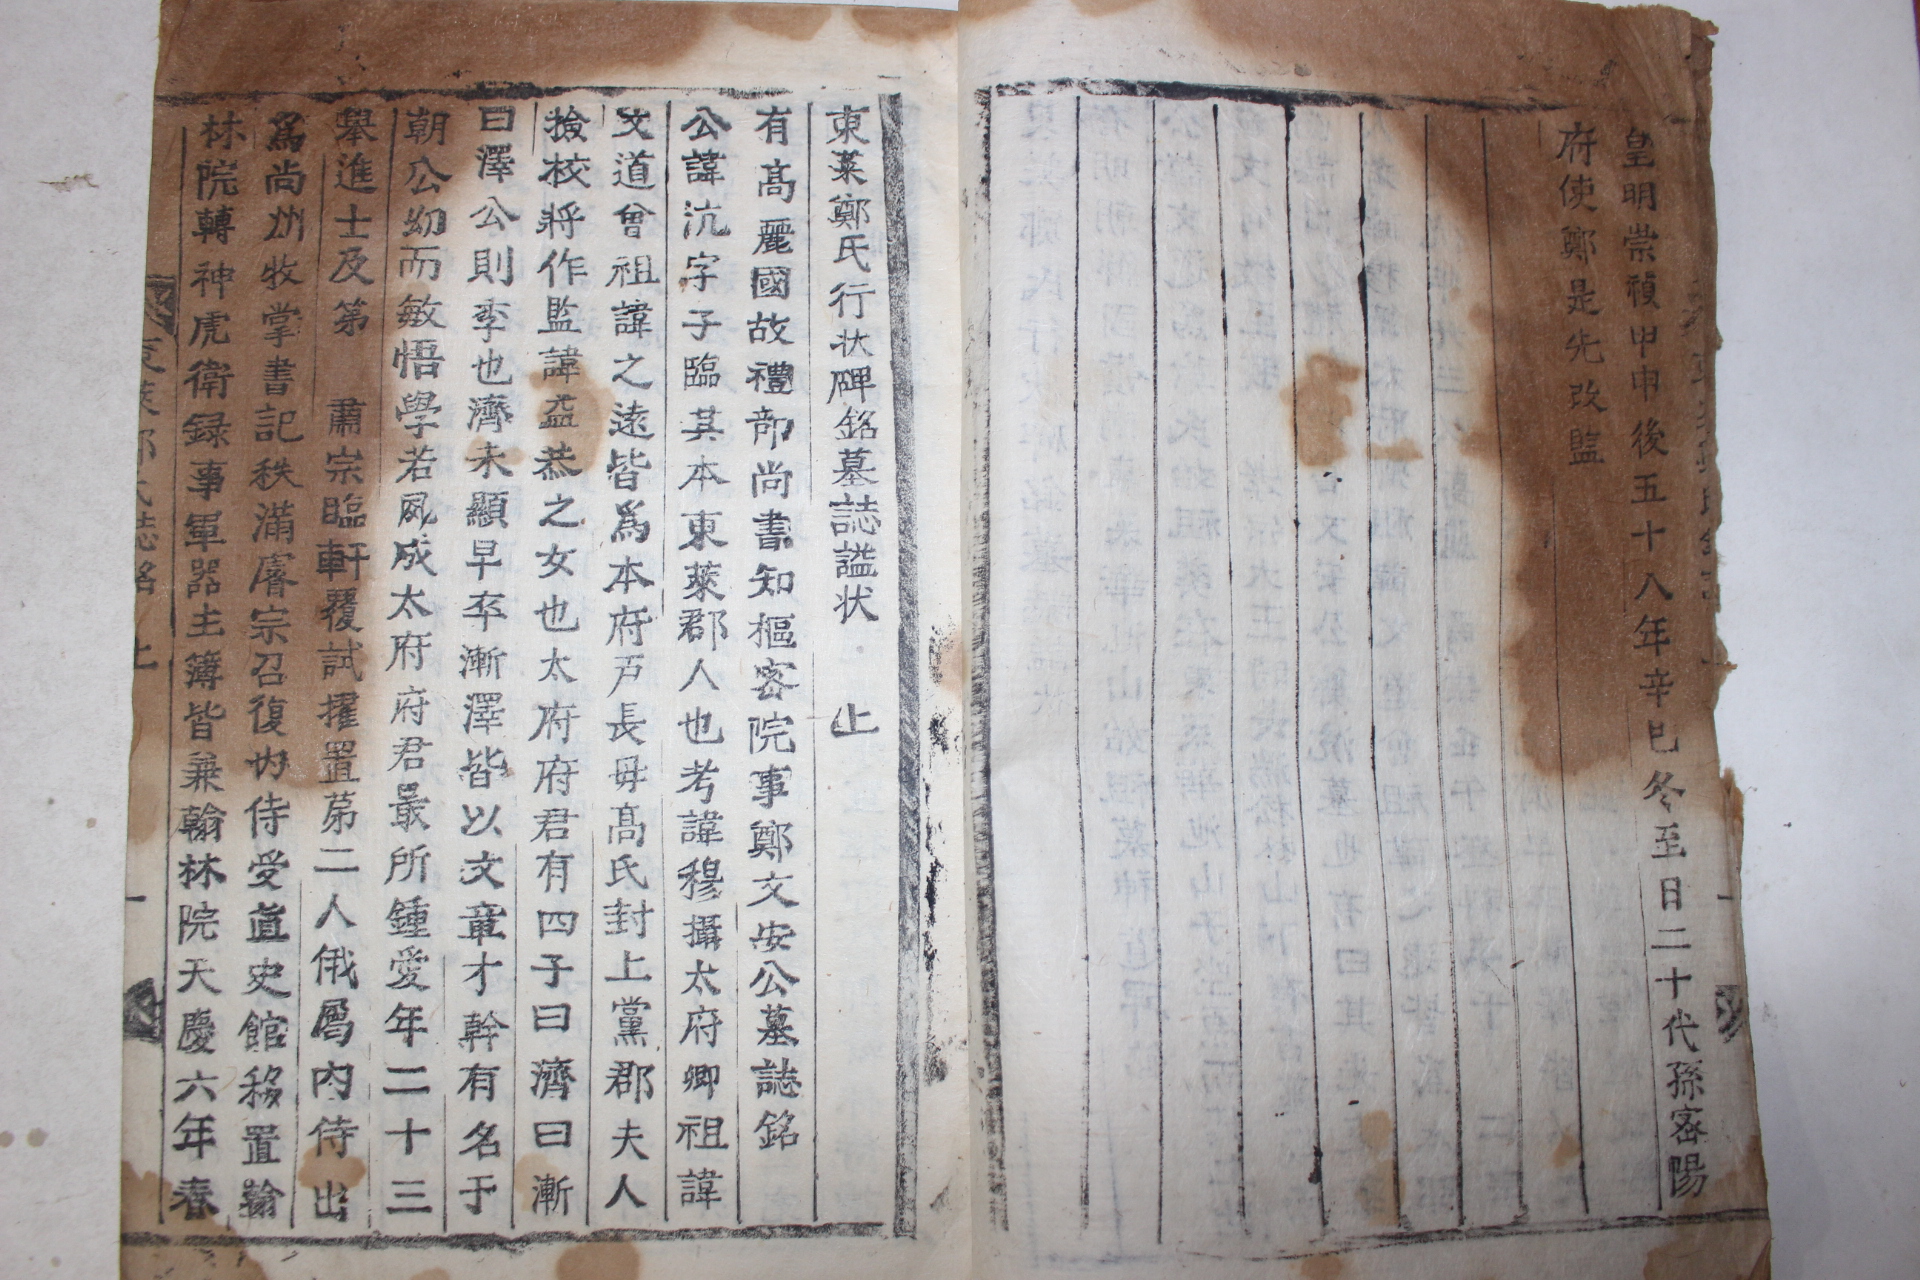 皇明崇禎甲申後五十八年辛巳冬至日二十代孫密陽
府使鄭是先改監
東萊鄭氏行狀碑銘墓誌謚狀 上
有高麗國故禮部尚書知樞密院事鄭文安公墓誌銘
公諱沆字子臨其本東萊郡人也考諱穆攝太府卿祖諱
文道曾祖諱之遠皆爲本府戶長毋高氏封上黨郡夫人
撿校將作監諱益恭之女也太府府君有四子曰濟曰漸
曰澤公則季也濟未顯早卒漸澤皆以文章才幹有名于
朝公幼而敏悟學若夙成太府府君最所鍾愛年二十三
舉進士及第 肅宗臨軒覆試擢置苐二人俄屬內侍出
爲尚州牧掌書記秩滿睿宗召復內侍受直史館移置翰
林院轉神虎衛録事軍器主簿皆兼翰林院天慶六年春
東萊鄭氏誌銘 上 一